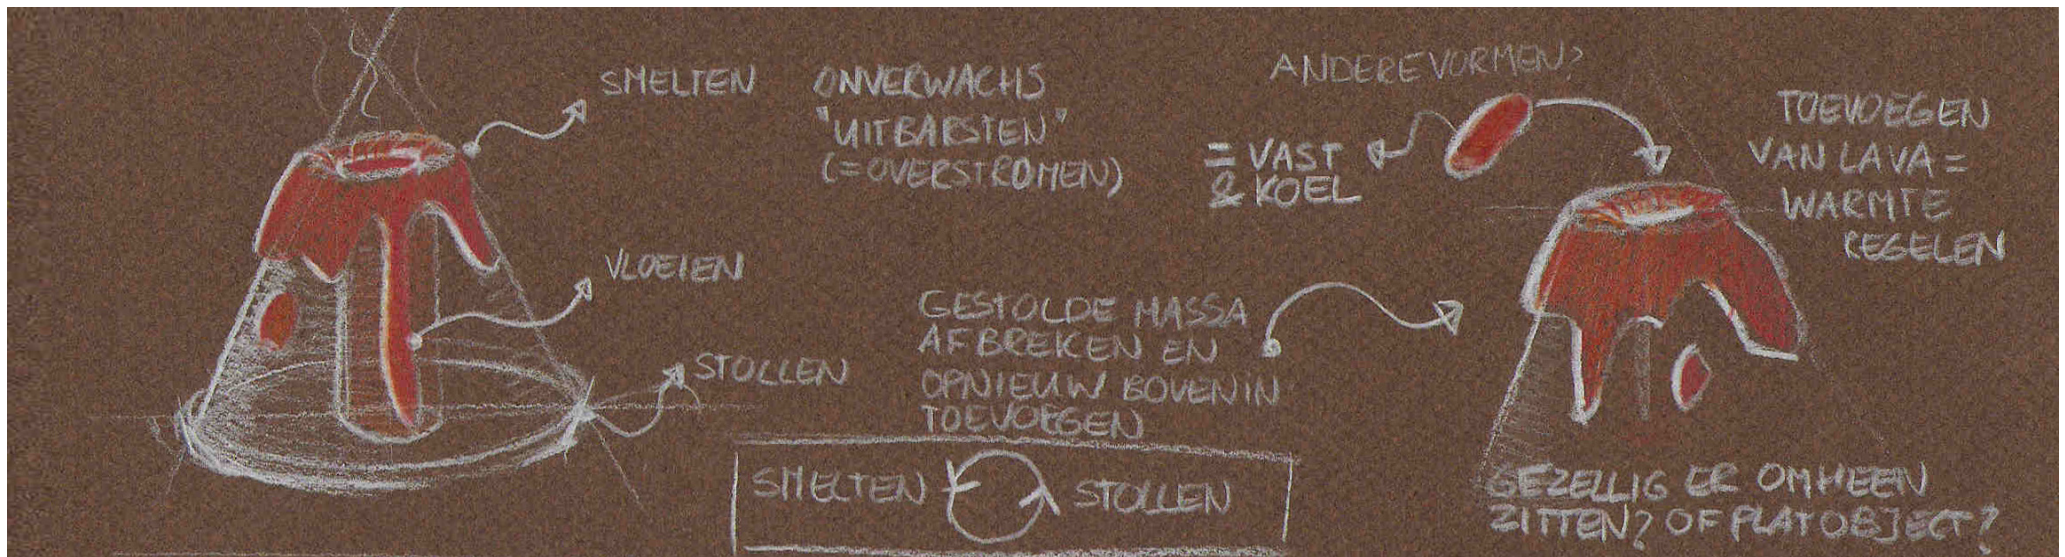 SMELTEN
ONVERWACHS
"UITBARSTEN"
(=OVERSTROMEN)
VLOEIEN
STOLLEN
ANDERE VORMEN?
= VAST
& KOEL
TOEVOEGEN
VAN LAVA =
WARMTE
REGELEN
GESTOLDE MASSA
AFBREKEN EN
OPNIEUW BOVENIN
TOEVOEGEN
SMELTEN STOLLEN
GEZELLIG ER OMHEEN
ZITTEN? OF PLAT OBJECT?